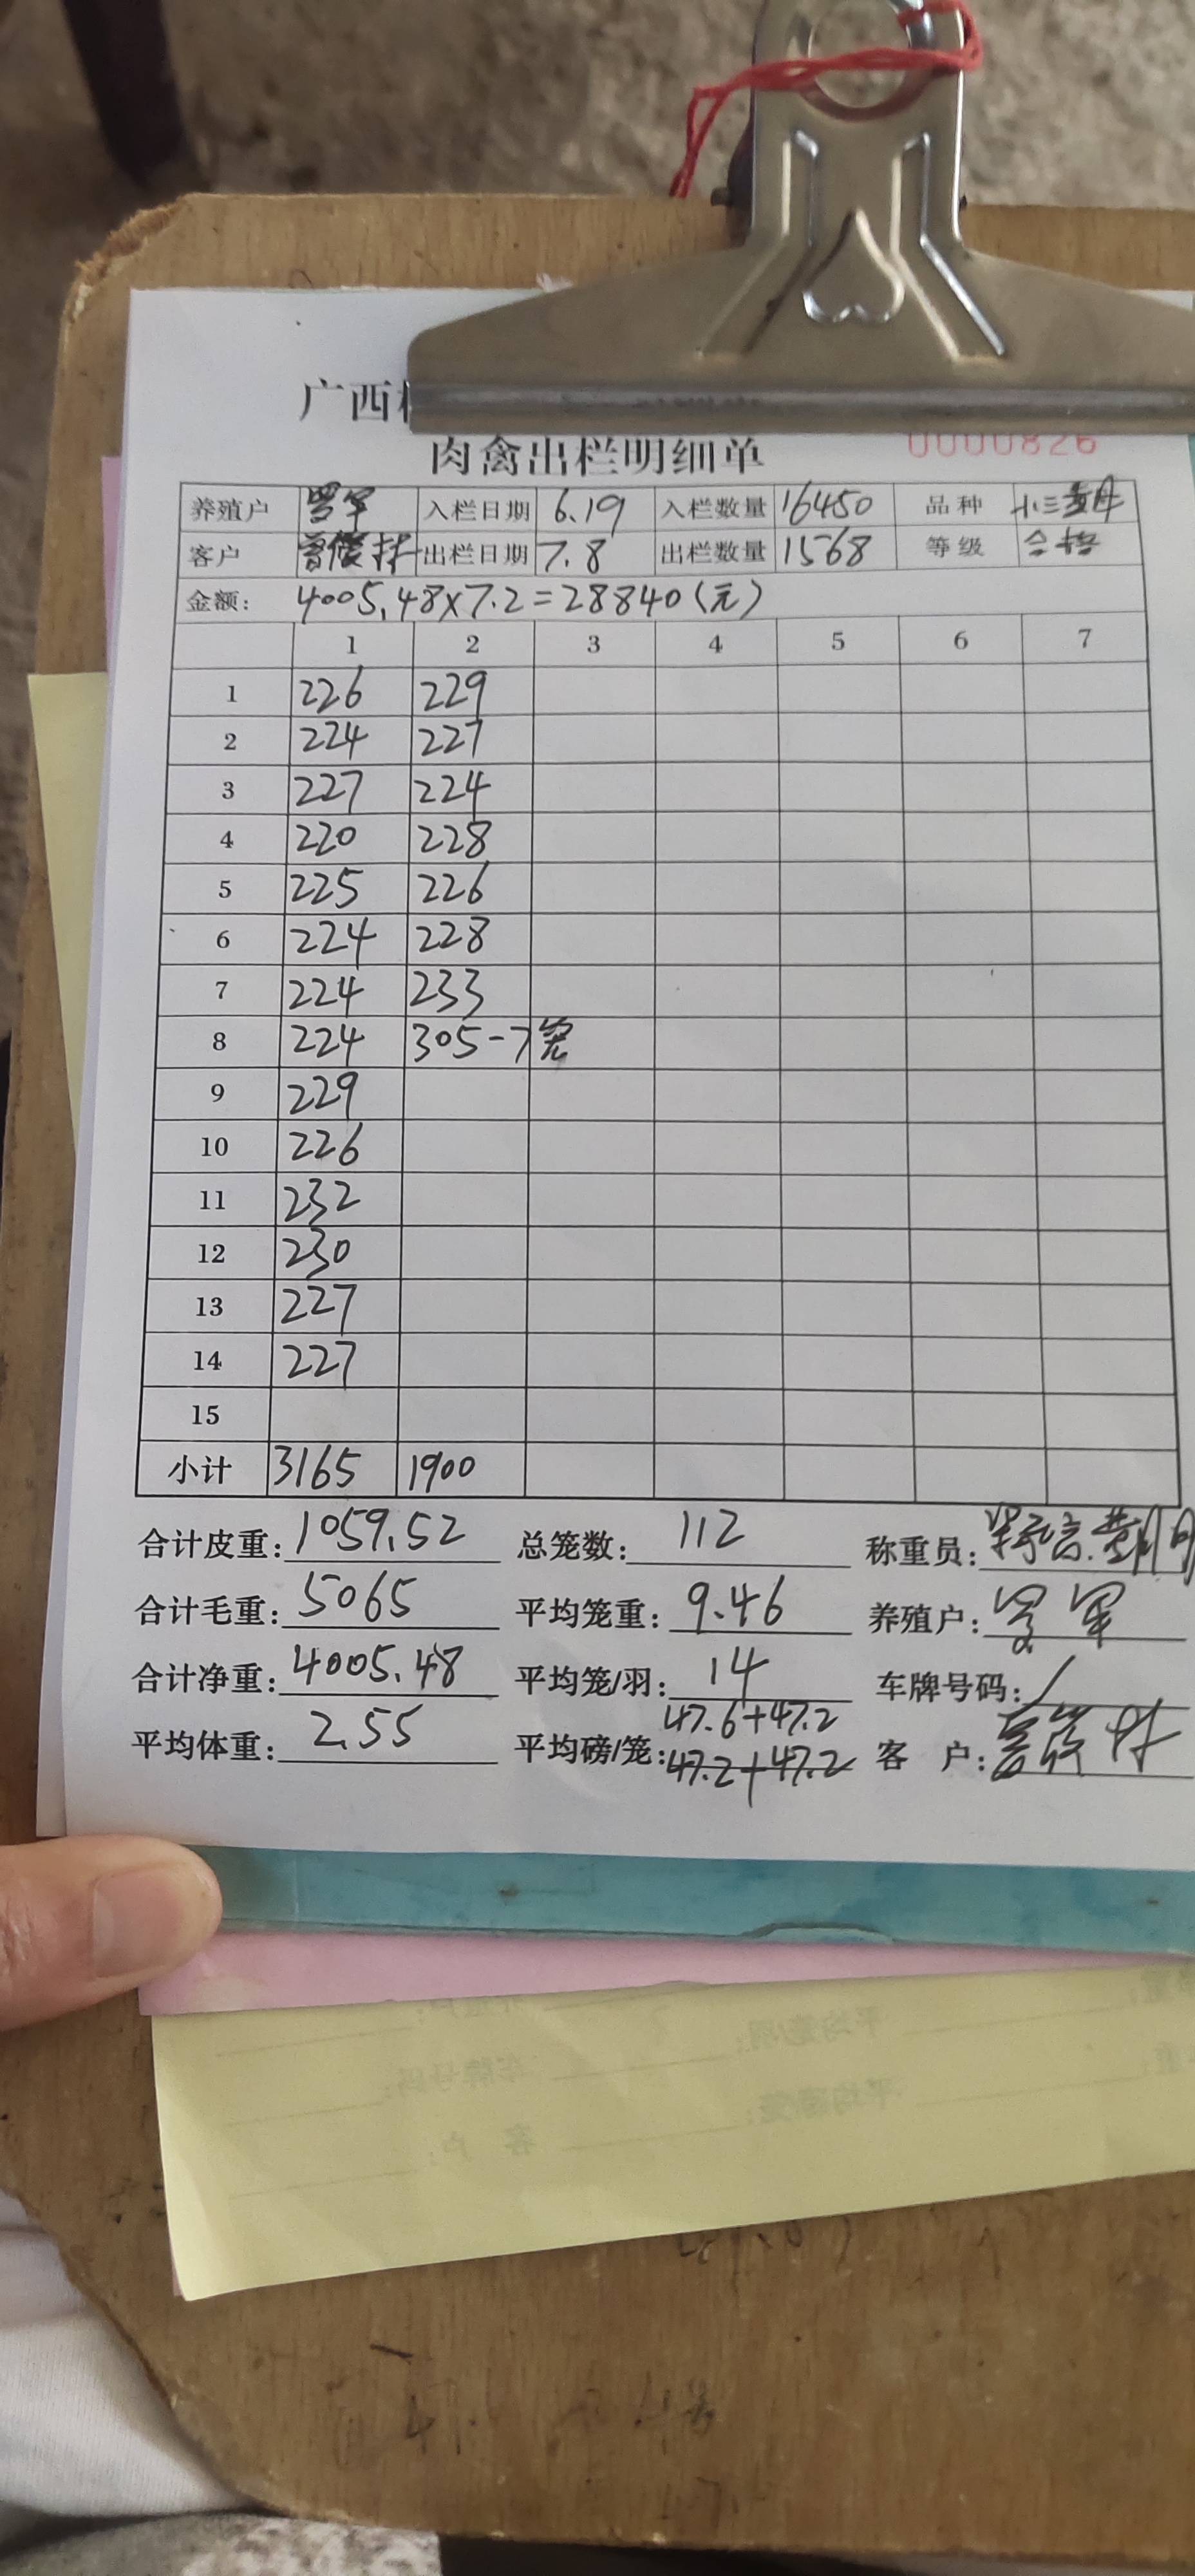 广西
肉禽出栏明细单 0000826
养殖户 罗军 入栏日期 6.19 入栏数量 16450 品种 小三黄母
客户 出栏日期 7.8 出栏数量 1568 等级 合格
金额: 4005.48×7.2=28840(元)
1 2 3 4 5 6 7
1 226 229
2 224 227
3 227 224
4 220 228
5 225 226
6 224 228
7 224 233
8 224 305-7笼
9 229
10 226
11 232
12 230
13 227
14 227
15
小计 3165 1900
合计皮重: 1059.52 总笼数: 112 称重员:
合计毛重: 5065 平均笼重: 9.46 养殖户: 罗军
合计净重: 4005.48 平均笼/羽: 14 车牌号码: /
47.6+47.2
平均体重: 2.55 平均磅/笼: 47.2+47.2 客户:
平均笼/羽:
车牌号码:
平均磅/笼:
客户: